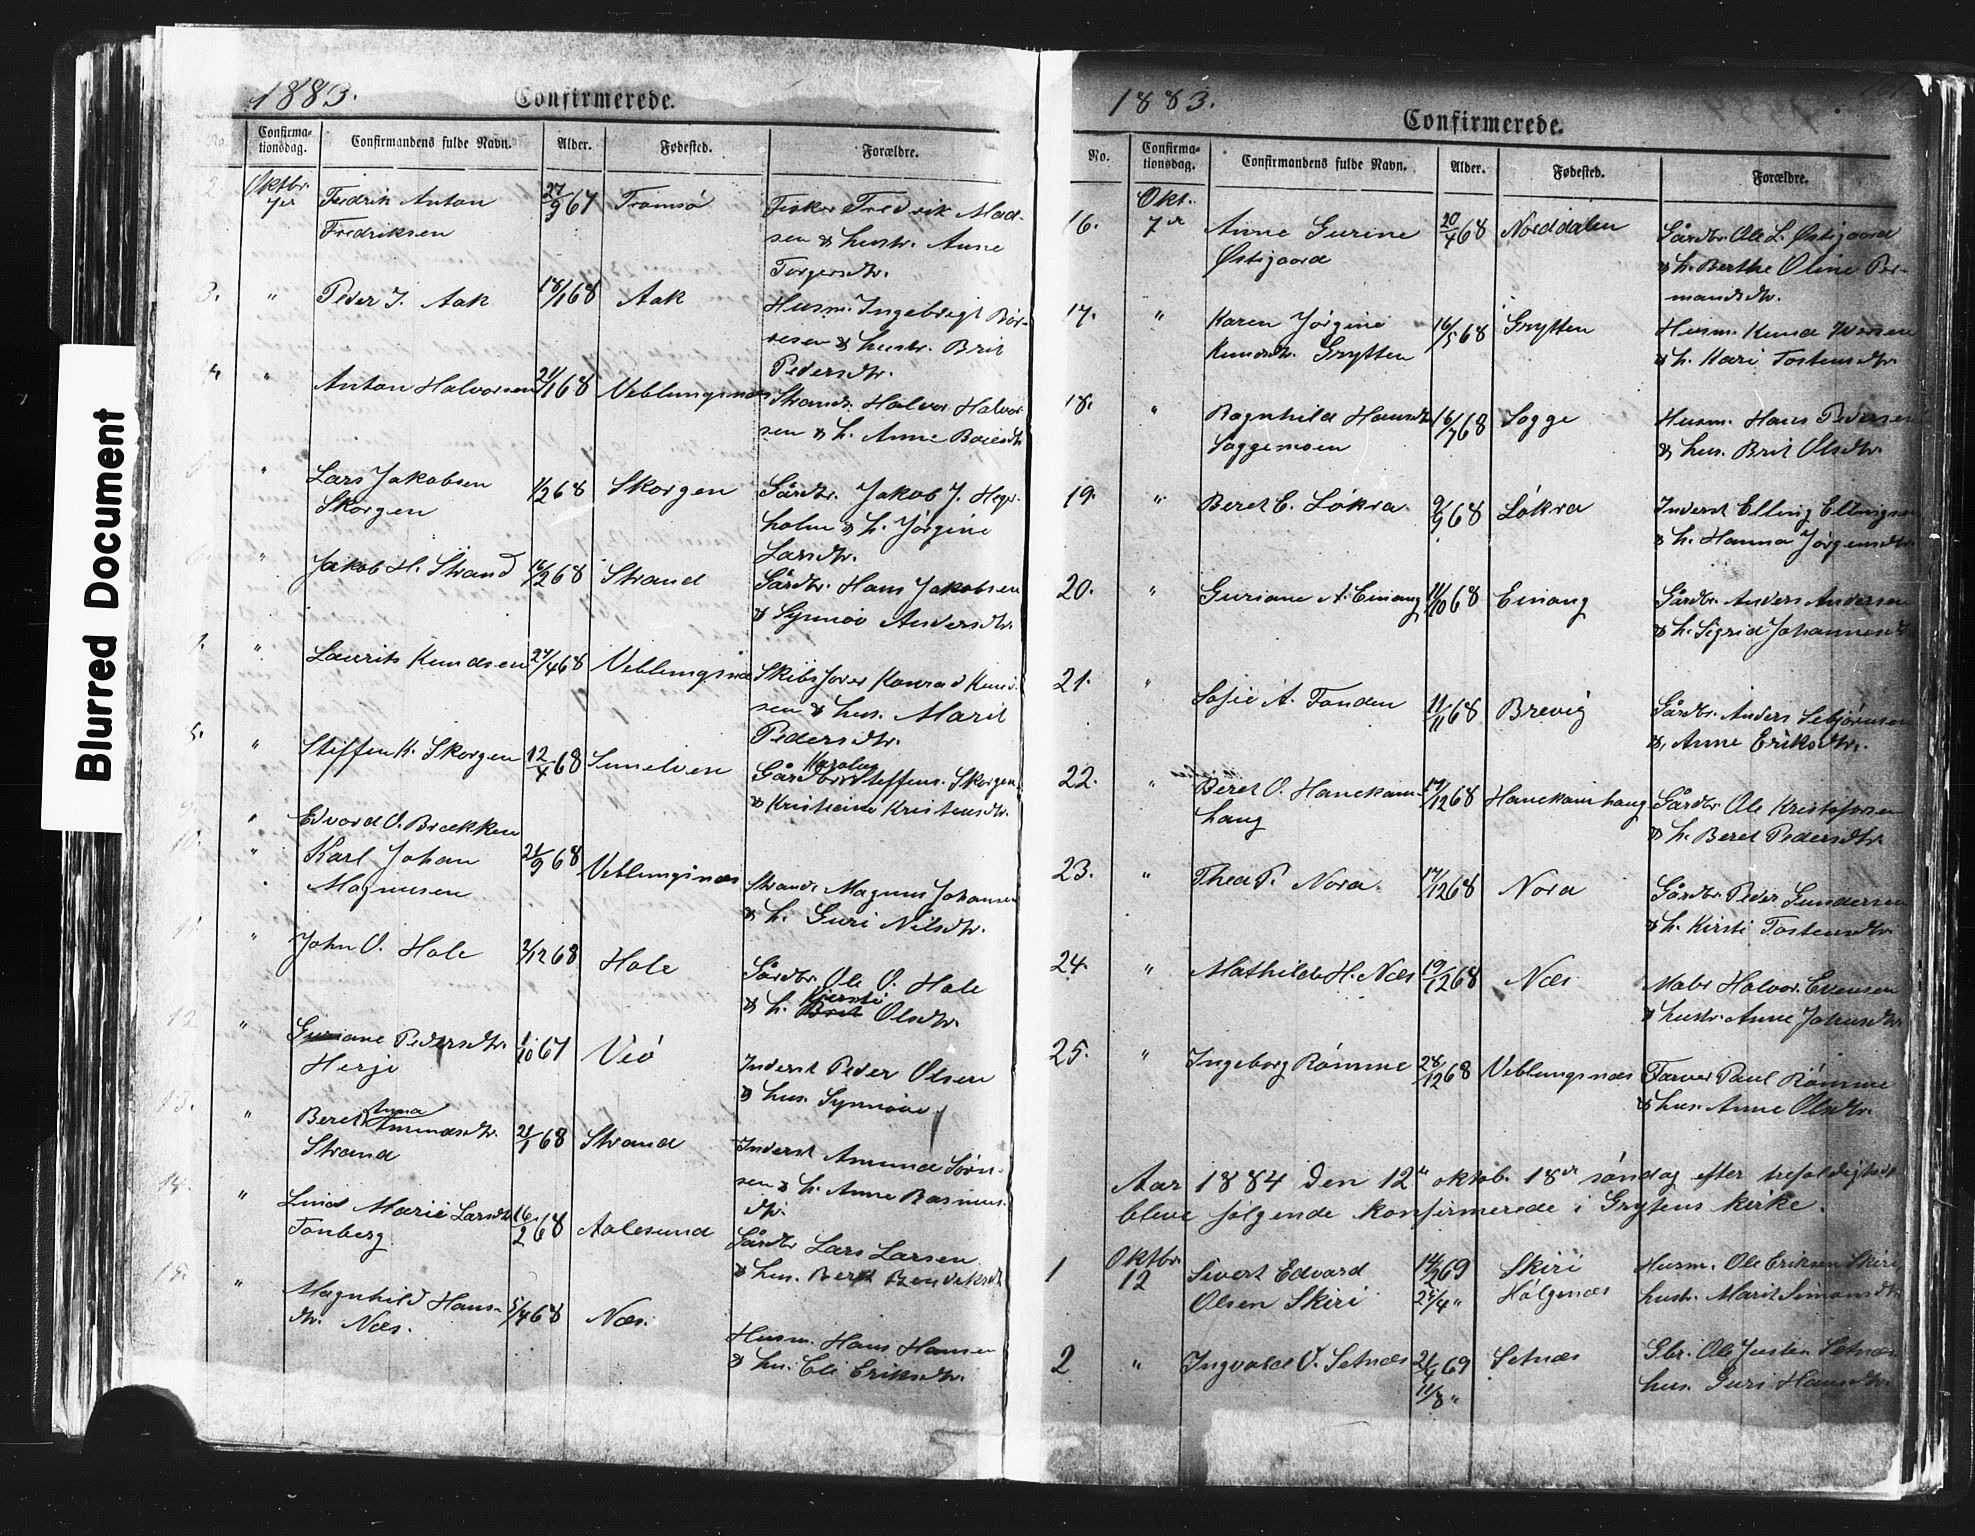 Blurred Document
1883.
Confirmerede.
No.
Confirma-
tionsdag.
Confirmandens fulde Navn.
Alder.
Fødested.
Forældre.
2.
Oktbr.
7de
Fredrik Anton
Fredriksen
27/9 67
Tromsø
Fisker Fredrik Mad-
sen & hustr. Anne
Torgersdtr.
3.
"
Peder I. Aak
18/1 68
Aak
Husm. Ingebrigt Bør-
resen & hustr. Brit
Pedersdtr.
4.
"
Anton Halvorsen
21/1 68
Veblungsnæs
Strands. Halvor Halvor-
sen & h. Anne
"
Lars Jakobsen
Skorgen
1/2 68
Skorgen
Gårdbr. Jakob J.
holm & h. Jørgine
Larsdtr.
"
Jakob H. Strand
16/2 68
Strand
Gårdbr. Hans Jakobsen
& Synnøv Andersdtr.
"
Laurits Knudsen
27/4 68
Veblungsnæs
Konrad Knud-
sen & hus. Marit
Pedersdtr.
"
Steffen K. Skorgen
12/4 68
Sunelven
Karolus
Gårdbr. Steffens. Skorgen
& Kristiane Kristensdtr.
"
Edvard O. Brækken
10.
"
Karl Johan
Magnusen
21/9 68
Veblungsnæs
Strands. Magnus Johansen
& h. Guri Nilsdtr.
11.
"
John O. Hole
2/12 68
Hole
Gårdbr. Ole O. Hole
Kjersti
& h. Brit Olsdtr.
12
"
Guriane Pedersdtr.
Herje
1/10 67
Veø
Inderst Peder Olsen
& hus. Synnøve
13.
"
Anna
Beret Amundsdtr.
Strand
21/1 68
Strand
Inderst Amund Sørn-
sen & h. Anne Rasmus-
dtr.
14.
"
Lina Marie Larsdtr.
Tonberg
16/2 68
Aalesund
Gårdbr Lars Larsen
& hus. Berit
15.
"
Magnhild Hans-
dtr. Næs.
5/4 68
Næs.
Husm. Hans Hansen
& hus. Eli Eriksdtr.
1883.
Confirmerede.
No.
Confirma-
tionsdag.
Confirmandens fulde Navn.
Alder.
Fødested.
Forældre.
16.
Okt.
7de
Anne Gurine
Østigaard
20/4 68
Norddalen
Gårdbr. Ole L. Østigaard
& h. Berthe Oline Per-
mandsdtr.
17.
"
Karen Jørgine
Knudsdtr. Grytten
16/5 68
Grytten
Husm. Knud Iversen
& h. Kari Tostensdtr.
18.
"
Ragnhild Hansdtr
Soggemoen
16/7 68
Sogge
Husm. Hans Pedersen
& hus. Brit Olsdtr.
19.
"
Beret E. Løkra
9/9 68
Løkra
Inderst Elling Ellingsen
& h. Hanna Jørgensdtr.
20.
"
Guriane A. Einang
11/10 68
Einang
Gårdbr. Anders Andersen
& h. Sigrid Johannesdtr.
21.
"
Sofie A. Tonden
11/11 68
Brevig
Gårdbr. Anders
&, Anne Eriksdtr.
22.
"
Beret O. Hanekam-
haug
17/12 68
Hanekamhaug
Gårdbr Ole Kristofersen
& h. Beret Pedersdtr.
23.
"
Thea P. Nora.
17/12 68
Nora
Gårdbr Peder Gundersen
& h. Kirsti Tostensdtr.
24.
"
Mathilde H. Næs
19/12 68
Næs
Maler Halvor Evensen
& hustr. Anne Johnsdtr.
25.
"
Ingeborg Rømme
28/12 68
Veblungsnæs
Farver Paul Rømme
& hus. Anne Olsdtr.
Aar 1884 den 12te oktob. 18de søndag efter trefoldighed
bleve følgende konfirmerede i Grytens kirke.
1
Oktbr.
12
Sivert Edvard
Olsen Skiri
14/2 69
25/4 "
Skiri
Holgenæs
Husm. Ole Eriksen Skiri
hustr. Marit Simonsdtr.
2
"
Ingvald O. Setnæs
21/4 69
11/8 "
Setnæs
Gbr. Ole Justen Setnæs
hus. Guri Hansdtr.